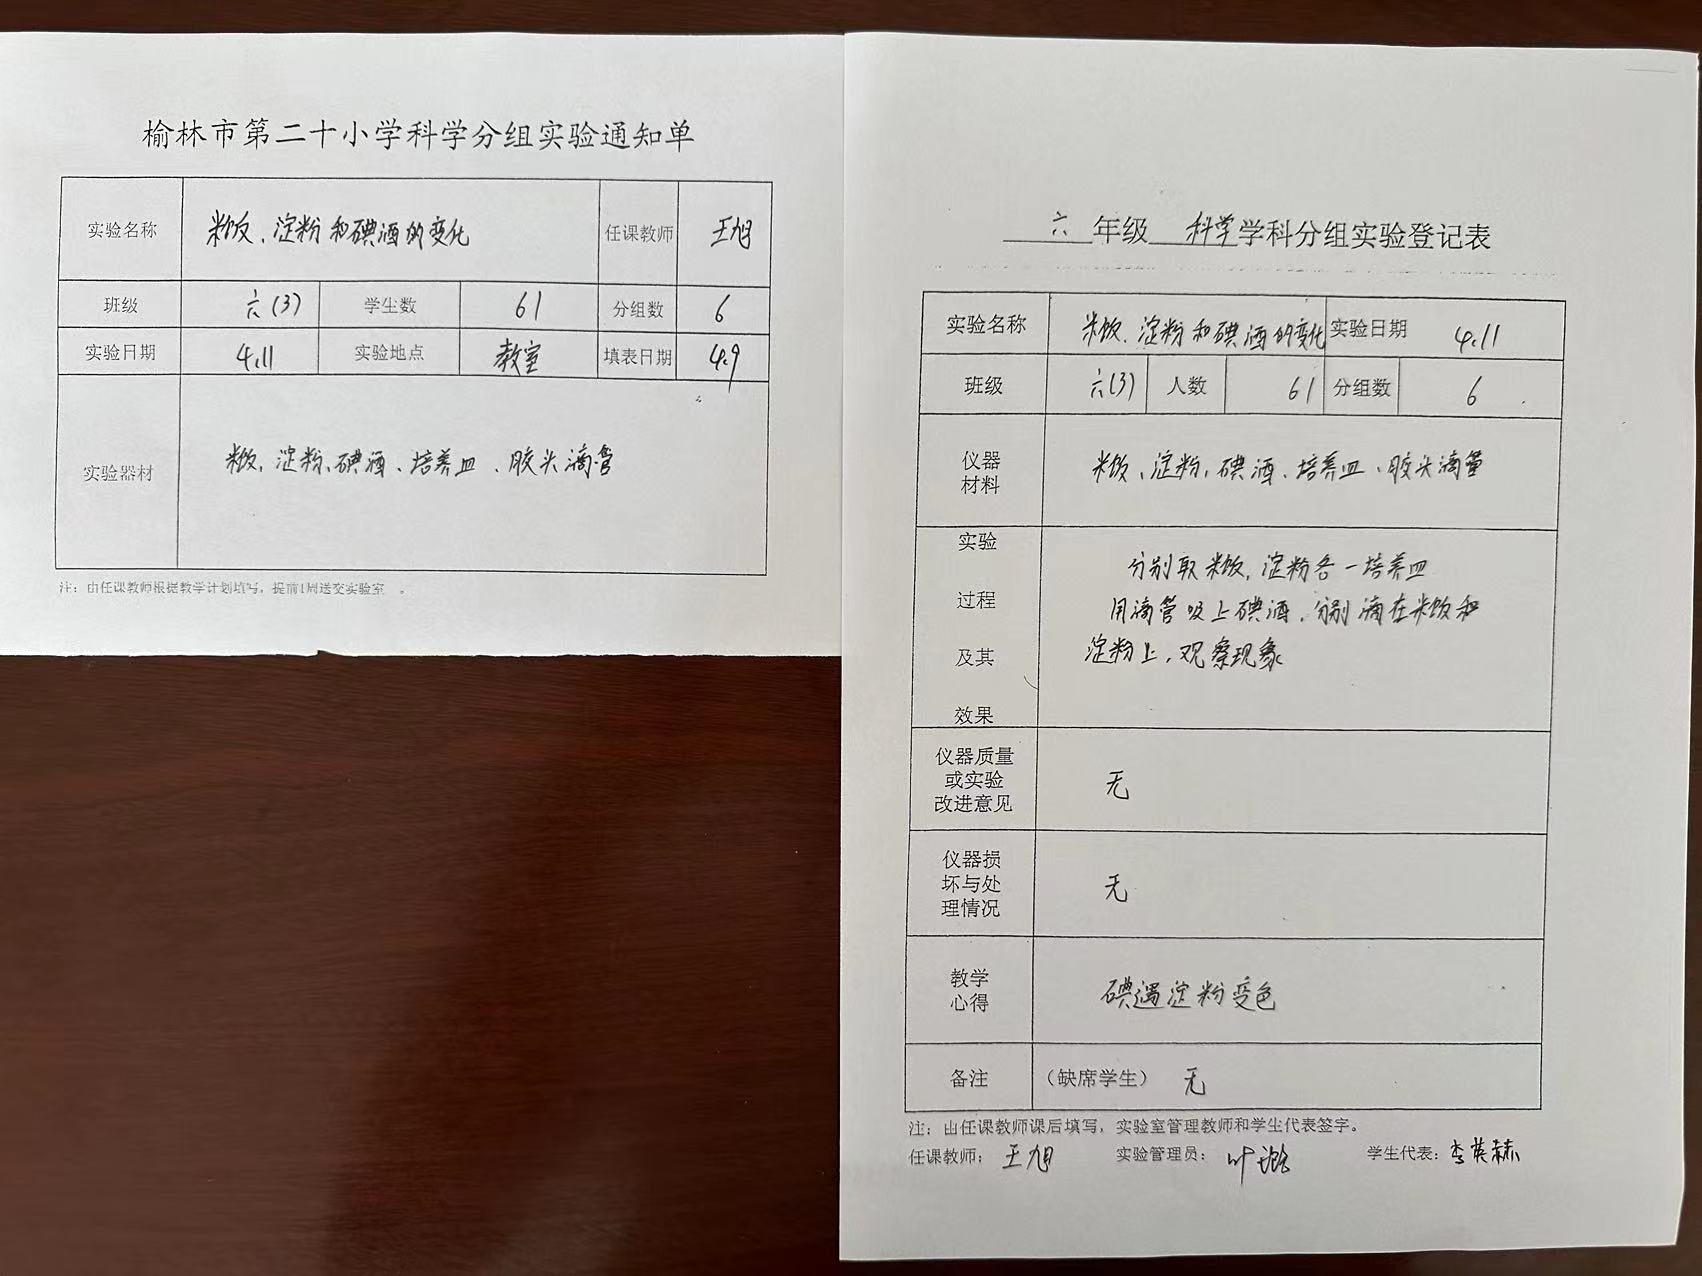 榆林市第二十小学科学分组实验通知单
实验名称 米饭、淀粉和碘酒的变化 任课教师 王旭
班级 六(3) 学生数 61 分组数 6
实验日期 4.11 实验地点 教室 填表日期 4.9
实验器材 米饭、淀粉、碘酒、培养皿、胶头滴管
注：由任课教师根据教学计划填写，提前1周送交实验室。
六年级 科学学科分组实验登记表
实验名称 米饭、淀粉和碘酒的变化 实验日期 4.11
班级 六(3) 人数 61 分组数 6
仪器
材料
米饭、淀粉、碘酒、培养皿、胶头滴管
实验
过程
及其
效果
分别取米饭，淀粉各一培养皿
用滴管吸上碘酒，分别滴在米饭和
淀粉上，观察现象
仪器质量
或实验
改进意见
无
仪器损
坏与处
理情况
无
教学
心得
碘遇淀粉变色
备注 （缺席学生） 无
注：由任课教师课后填写，实验室管理教师和学生代表签字。
任课教师：王旭 实验管理员：叶 学生代表：李英赫